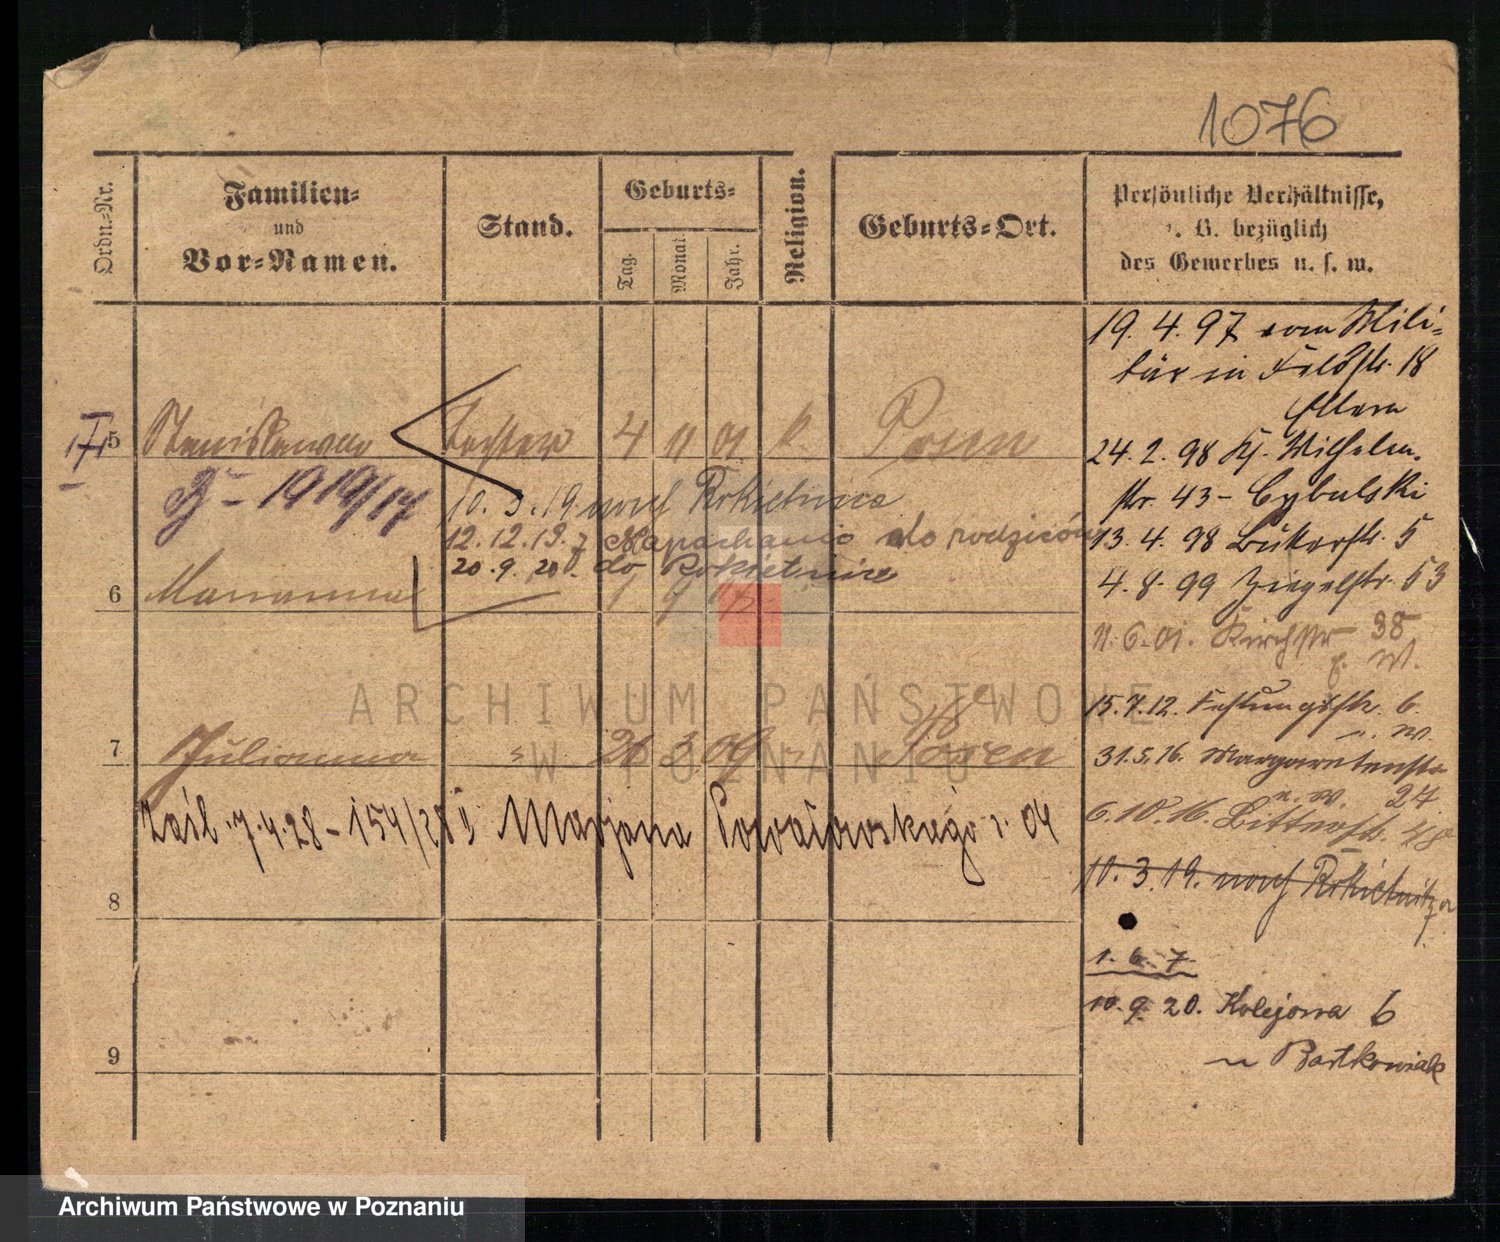 1076
Ordn.-Nr.
Familien-
und
Vor-Namen.
Stand.
Geburts-
Tag.
Monat
Jahr.
Religion.
Geburts-Ort.
Persönliche Verhältnisse,
. B. bezüglich
des Gewerbes u. s. w.
19. 4. 97 vom Mili-
tär in Feldstr. 18
Eltern
24. 2. 98 Wilhelm-
str. 43 - Cybulski
13. 4. 98 Bukerstr. 5
4. 8. 99 Ziegelstr. 53
11. 6. 01. Kirchstr 38
W.
15. 7. 12. Festungsstr. 6.
u. W.
31. 5. 16. Margaretenstr
u. W. 24
6. 10. 16. Bittnerstr. 48
10. 3. 19. nach Rokietnitza
1. 6. 7
10. 9. 20. Kolejowa 6
u Bartkowiak
5 Stanislawa Tochter 4 11 01 k Posen
1919/17
10. 3. 19 nach Rokietnica
12. 12. 19. z Napachanio do rodziców
20. 9. 20. do Rokietnice
6 Marianna
7 Julianna " 26 3 09 " Posen
Zaśl. 7. 4. 28 - 154/28 Marjana r. 04
8
9
ARCHIWUM PAŃSTWOWE
W POZNANIU
Archiwum Państwowe w Poznaniu